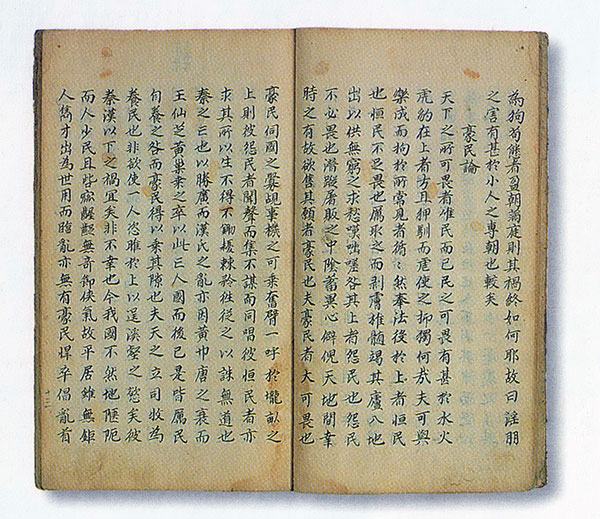 為狗苟態者盈朝滿庭則其禍終如何耶故曰淫朋
之害有甚於小人之專朝也較矣
豪民論
天下之所可畏者唯民而已民之可畏有甚於水火
虎豹在上者方且狎馴而虐使之抑獨何哉夫可與
樂成而拘於所常見者循〻然奉法役於上者恒民
也恒民不足畏也厲取之而剝膚椎髓竭其廬入地
出以供無窮之求愁嘆咄嗟咎其上者怨民也怨民
不必畏也潛蹤屠販之中陰蓄異心僻倪天地間幸
時之有故欲售其願者豪民也夫豪民者大可畏也
豪民伺國之釁覘事機之可乘奮臂一呼於壟畝之
上則彼怨民者聞聲而集不謀而同唱彼恒民者亦
求其所以生不得不鋤耰棘矜往從之以誅無道也
秦之亡也以勝廣而漢氏之亂亦因黃巾唐之衰而
王仙芝黃巢乘之卒以此亡人國而後已是皆厲民
自養之咎而豪民得以乘其隙也夫天之立司牧為
養民也非欲使一人恣睢於上以逞溪壑之慾矣彼
秦漢以下之禍宜矣非不幸也今我國不然地陿阨
而人少民且呰窳齷齪無奇節俠氣故平居雖無鉅
人雋才出為世用而臨亂亦無有豪民悍卒倡亂首
十三